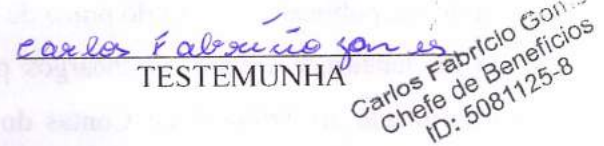 Carlos Fabrício Gomes
TESTEMUNHA
Carlos Fabrício Gom
Chefe de Benefícios
ID: 5081125-8